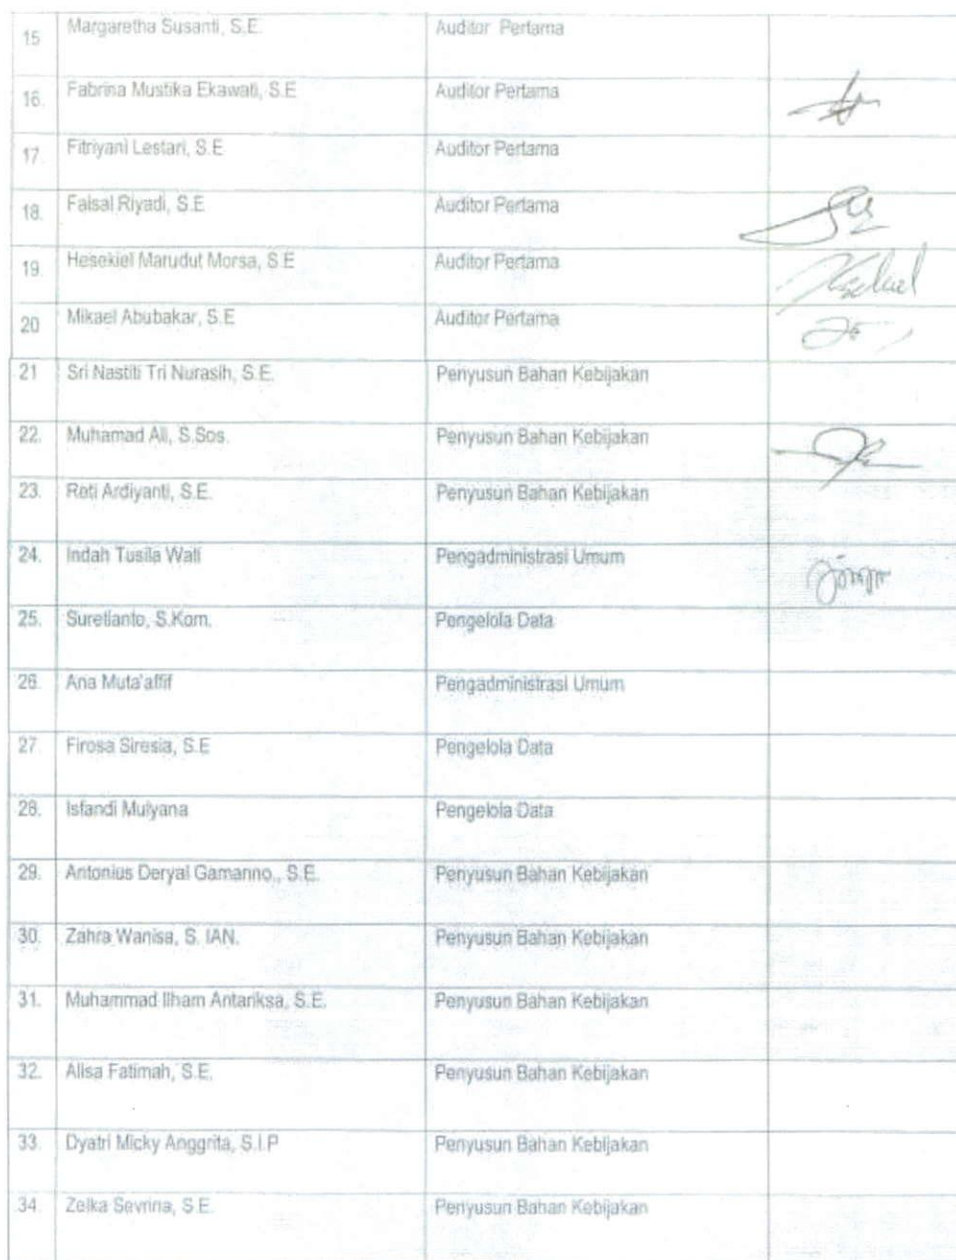 15 Margaretha Susanti, S.E. Auditor Pertama
16. Fabrina Mustika Ekawati, S.E Auditor Pertama
17. Fitriyani Lestari, S.E Auditor Pertama
18. Faisal Riyadi, S.E Auditor Pertama
19. Hesekiel Marudut Morsa, S.E Auditor Pertama
20 Mikael Abubakar, S.E Auditor Pertama
21 Sri Nastiti Tri Nurasih, S.E. Penyusun Bahan Kebijakan
22. Muhamad Ali, S.Sos. Penyusun Bahan Kebijakan
23. Reti Ardiyanti, S.E. Penyusun Bahan Kebijakan
24. Indah Tusila Wati Pengadministrasi Umum
25. Suretianto, S.Kom. Pengelola Data
26. Ana Muta'affif Pengadministrasi Umum
27 Firosa Siresia, S.E Pengelola Data
28. Isfandi Mulyana Pengelola Data
29. Antonius Deryal Gamanno., S.E. Penyusun Bahan Kebijakan
30. Zahra Wanisa, S. IAN. Penyusun Bahan Kebijakan
31. Muhammad Ilham Antariksa, S.E. Penyusun Bahan Kebijakan
32. Alisa Fatimah, S.E. Penyusun Bahan Kebijakan
33. Dyatri Micky Anggrita, S.I.P Penyusun Bahan Kebijakan
34. Zelka Sevrina, S.E. Penyusun Bahan Kebijakan